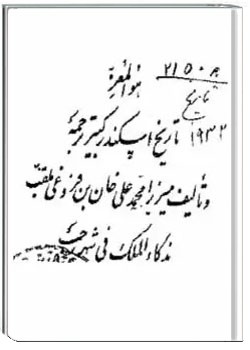 ۲۱۵۰۸
هو المعزّ
تاریخ
۱۹۳۲
تاریخ اسکندر کبیر ترجمهٔ
و تألیف میرزا محمد علی خان بن فروغی ملقب
بذکاء الملک فی شهر رجب